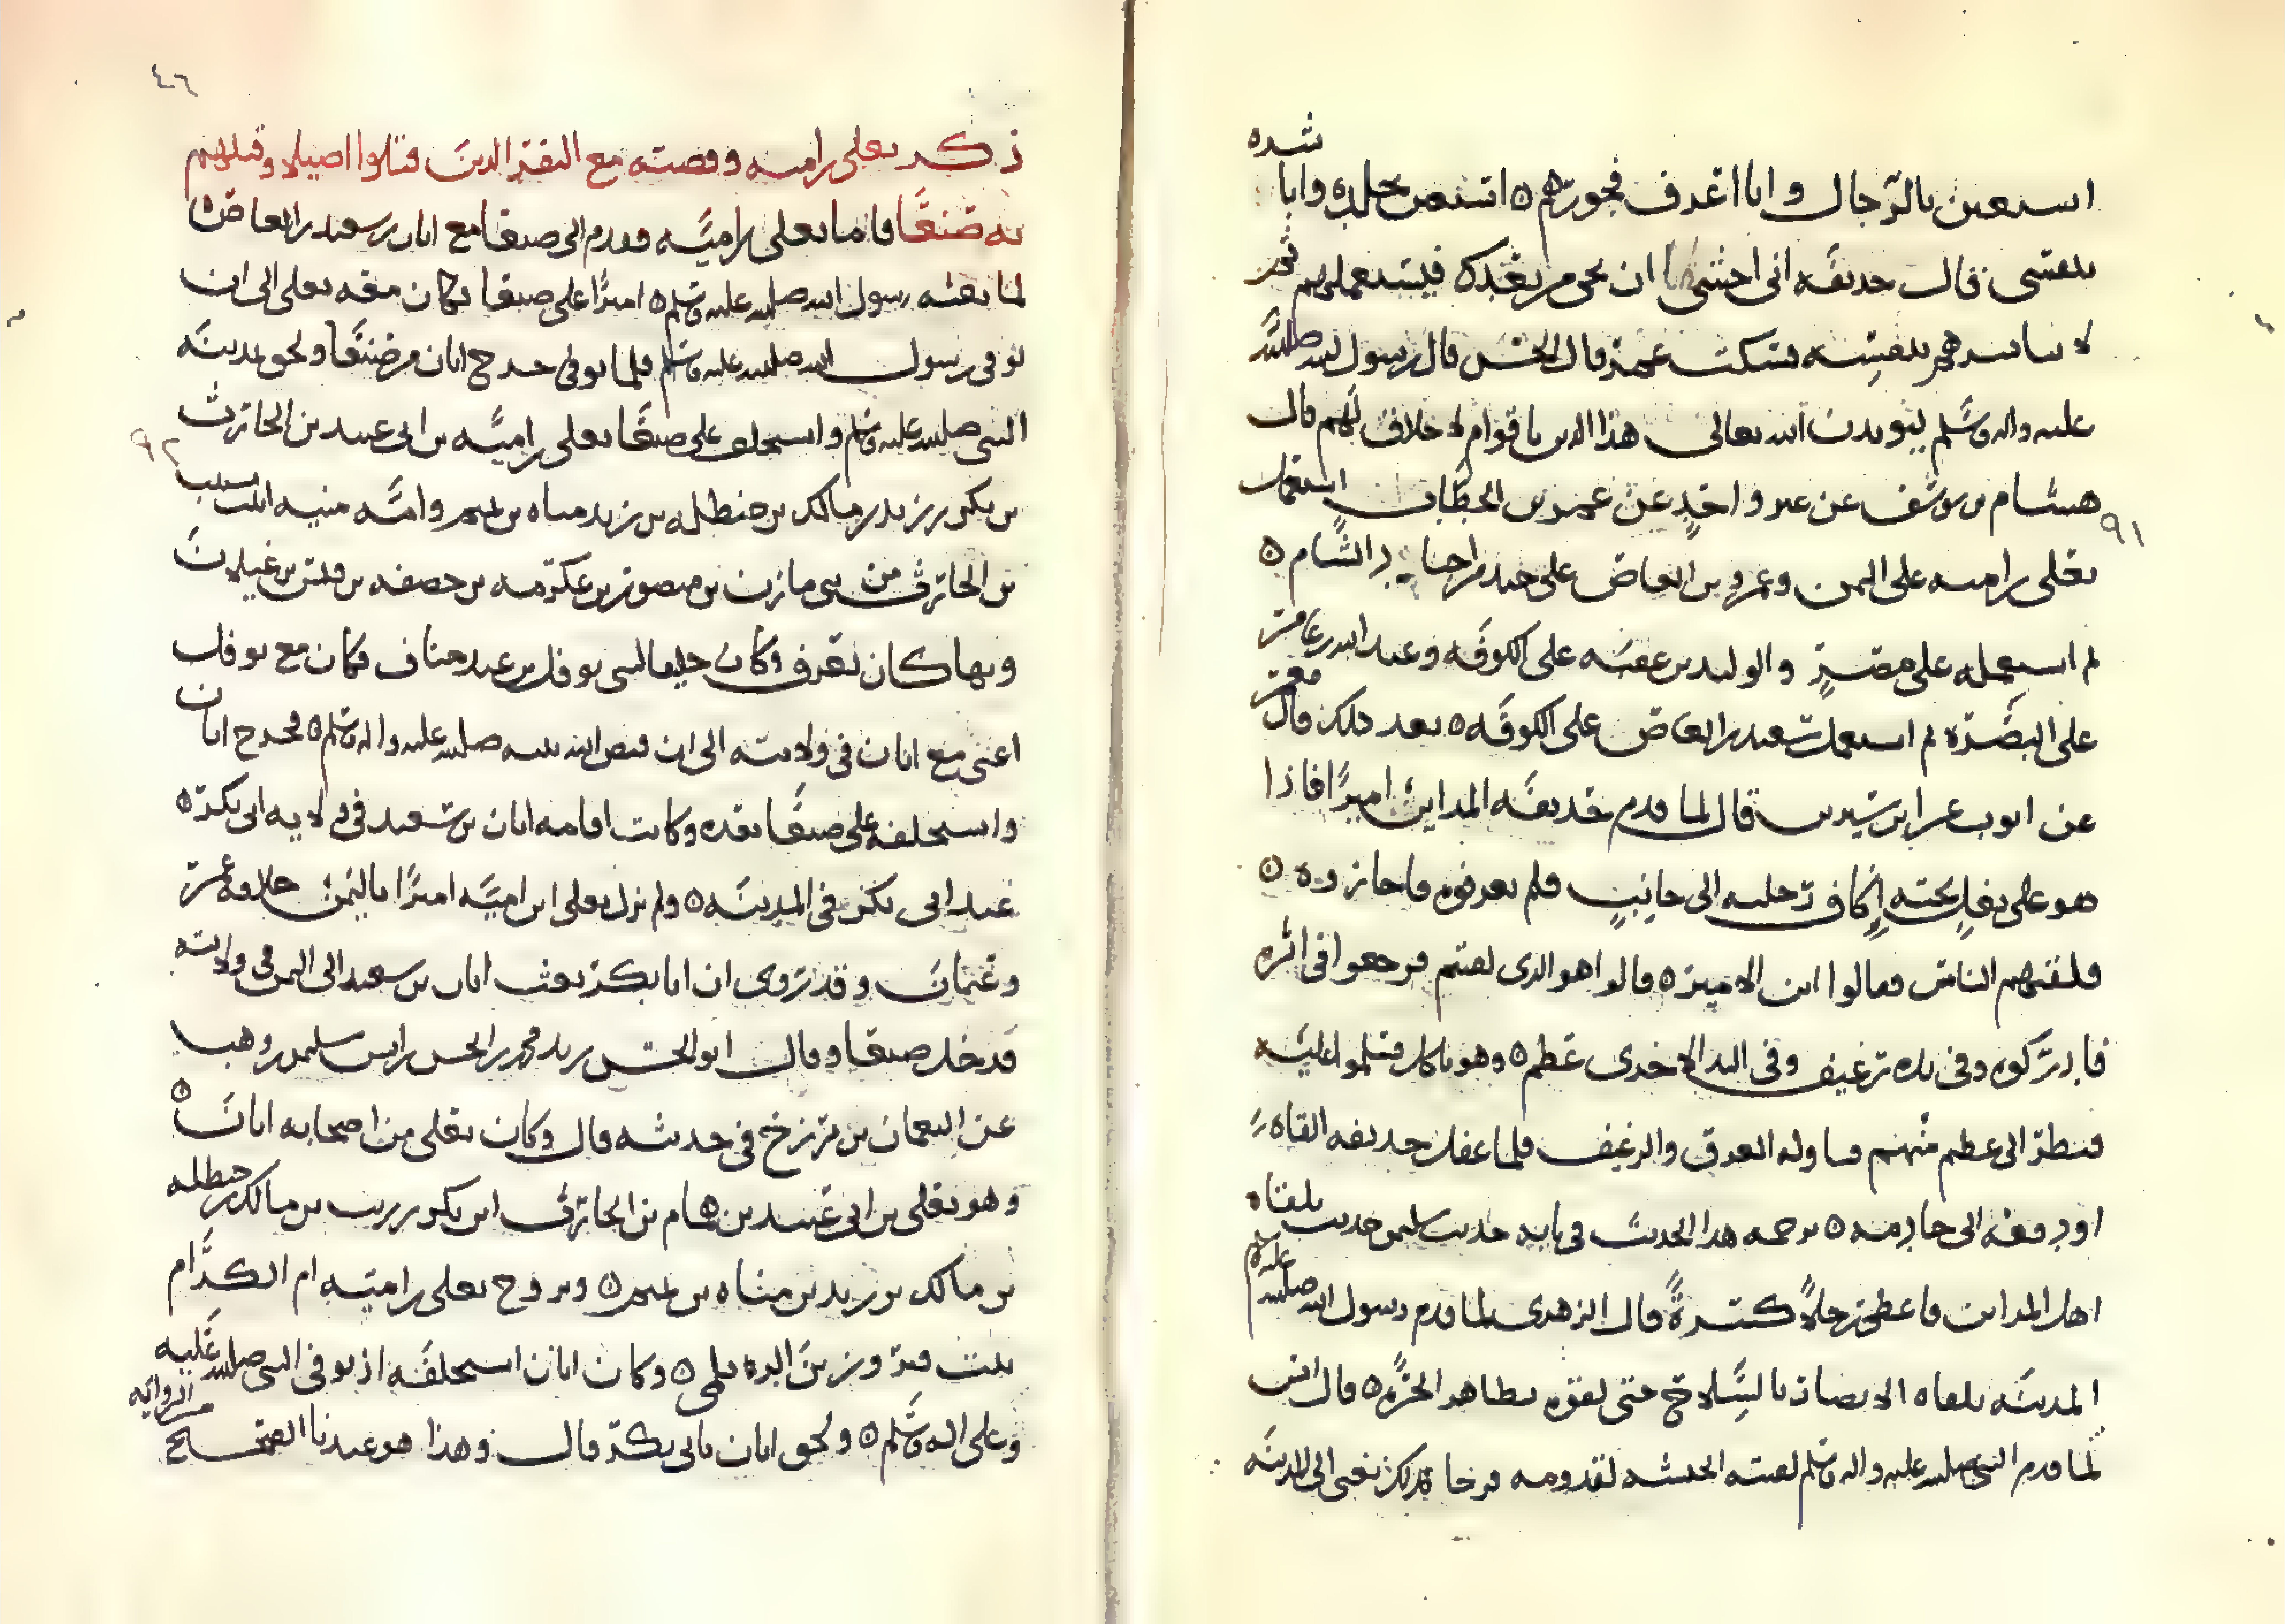 استعين بالرجال وانا اعرف فجورهم استنصر بجلده وانا شده
بنفسي قال حذيفه اني اخشى ان يجي من بعدك فيستعملهم ثم
لا يباشرهم بنفسه فسكت عمر قال الحسن قال رسول الله صلى الله
عليه واله وسلم ليؤيدن الله تعالى هذا الدين باقوام لا خلاق لهم قال
هشام بن يوسف عن غير واحد عن عمر بن الخطاب استعمل
٩١
يعلى بن اميه على اليمن وعمرو بن العاص على جند من اجناد الشام
ثم استعمله على مصر والوليد بن عقبه على الكوفه وعبد الله بن عامر
على البصره ثم استعمل سعيد بن العاص على الكوفه بعد ذلك قال معمر
عن ايوب عن ابن سيرين قال لما قدم حذيفه المداين اميرا فاذا
هو على بغل تحته اكاف رجليه الى جانب فلم يعرفوه فاجازوه
فلقيهم الناس فقالوا اين الامير قالوا هو الذي لقيتم فرجعوا في اثره
فادركوه وفي يده رغيف وفي اليد الاخرى عظم وهو ياكل فسلموا عليه
فنظر الى عظيم منهم فناوله العرق والرغيف فلما غفل حذيفه القاه
او دفعه الى خادمه ترجمه هذا الحديث في بابه حديث سلمن حديث بلقاه
اهل المداين فاعطى رجلا كسرة قال الزهري لما قدم رسول الله صلى الله عليه
المدينه تلقاه الانصار بالسلاح حتى لقوه بظاهر الحره قال انس
لما قدم النبي صلى الله عليه واله وسلم لعبت الحبشه لقدومه فرحا بذلك يعني الى المدينه
٤٦
ذكر يعلى بن اميه وقصته مع النفر الذين قتلوا اصيلا وقتلهم
به صنعا فاما يعلى بن اميه فقدم الى صنعا مع ابان بن سعيد بن العاص
لما بعثه رسول الله صلى الله عليه وسلم اميرا على صنعا فكان معه يعلى الى ان
توفي رسول الله صلى الله عليه وسلم فلما توفي خرج ابان من صنعا ولحق بمدينه
النبي صلى الله عليه وسلم واستخلف على صنعا يعلى بن اميه بن ابي عبيد بن الحارث
٩٢
بن بكر بن زيد بن مالك بن حنظله بن زيد مناه بن تميم وامه منيه ابنت نسيب
بن الحارث من بني مازن بن منصور بن عكرمه بن خصفه بن قيس بن غيلان
وبها كان يعرف وكان حليفا لبني نوفل بن عبد مناف فكان مع نوفل
اعني مع ابان في ولايته الى ان قبض الله نبيه صلى الله عليه واله وسلم فخرج ابان
واستخلفه على صنعا بعده وكانت اقامه ابان بن سعيد في ولايه ابي بكر
عند ابي بكر في المدينه ولم يزل يعلى ابن اميه اميرا باليمن خلافه عمر
وعثمان وقد روي ان ابا بكر بعث ابان بن سعيد الى اليمن في ولايته
فدخل صنعا وقال ابو الحسن يريد محمد بن الحسن بن اتش سليمن بن وهب
عن النعمان بن بزرخ في حديثه قال وكان يعلى من اصحابه ابان
وهو يعلى بن ابي عبيد بن همام بن الحارث ابن بكر بن زيد بن مالك بن حنظله
بن مالك بن زيد بن مناه بن تميم وتزوج يعلى بن اميه ام الكرام
بنت فيروز بن الديلمي وكان ابان استخلفه اذ توفي النبي صلى الله عليه
وعلى اله وسلم ولحق ابان بابي بكر قال وهذا هو عندنا الصحيح من الروايه